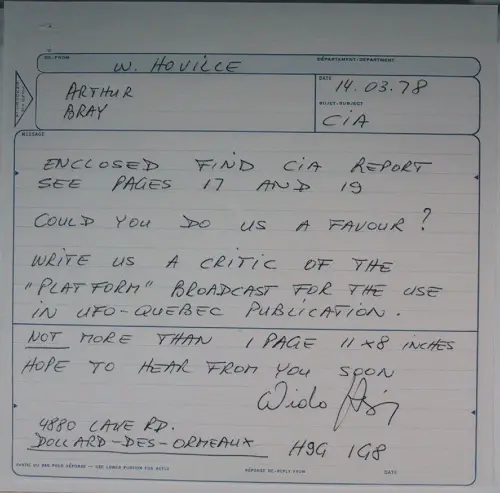 DE-FROM
W. HOVILLE
DÉPARTEMENT-DEPARTMENT
ARTHUR
BRAY
DATE
14.03.78
SUJET-SUBJECT
CIA
MESSAGE
ENCLOSED FIND CIA REPORT
SEE PAGES 17 AND 19
COULD YOU DO US A FAVOUR?
WRITE US A CRITIC OF THE
"PLATFORM" BROADCAST FOR THE USE
IN UFO-QUEBEC PUBLICATION.
NOT MORE THAN 1 PAGE 11 x 8 INCHES
HOPE TO HEAR FROM YOU SOON
Wido
4880 LAKE RD.
DOLLARD-DES-ORMEAUX H9G 1G8
PARTIE DU BAS POUR RÉPONSE - USE LOWER PORTION FOR REPLY
RÉPONSE DE-REPLY FROM
DATE